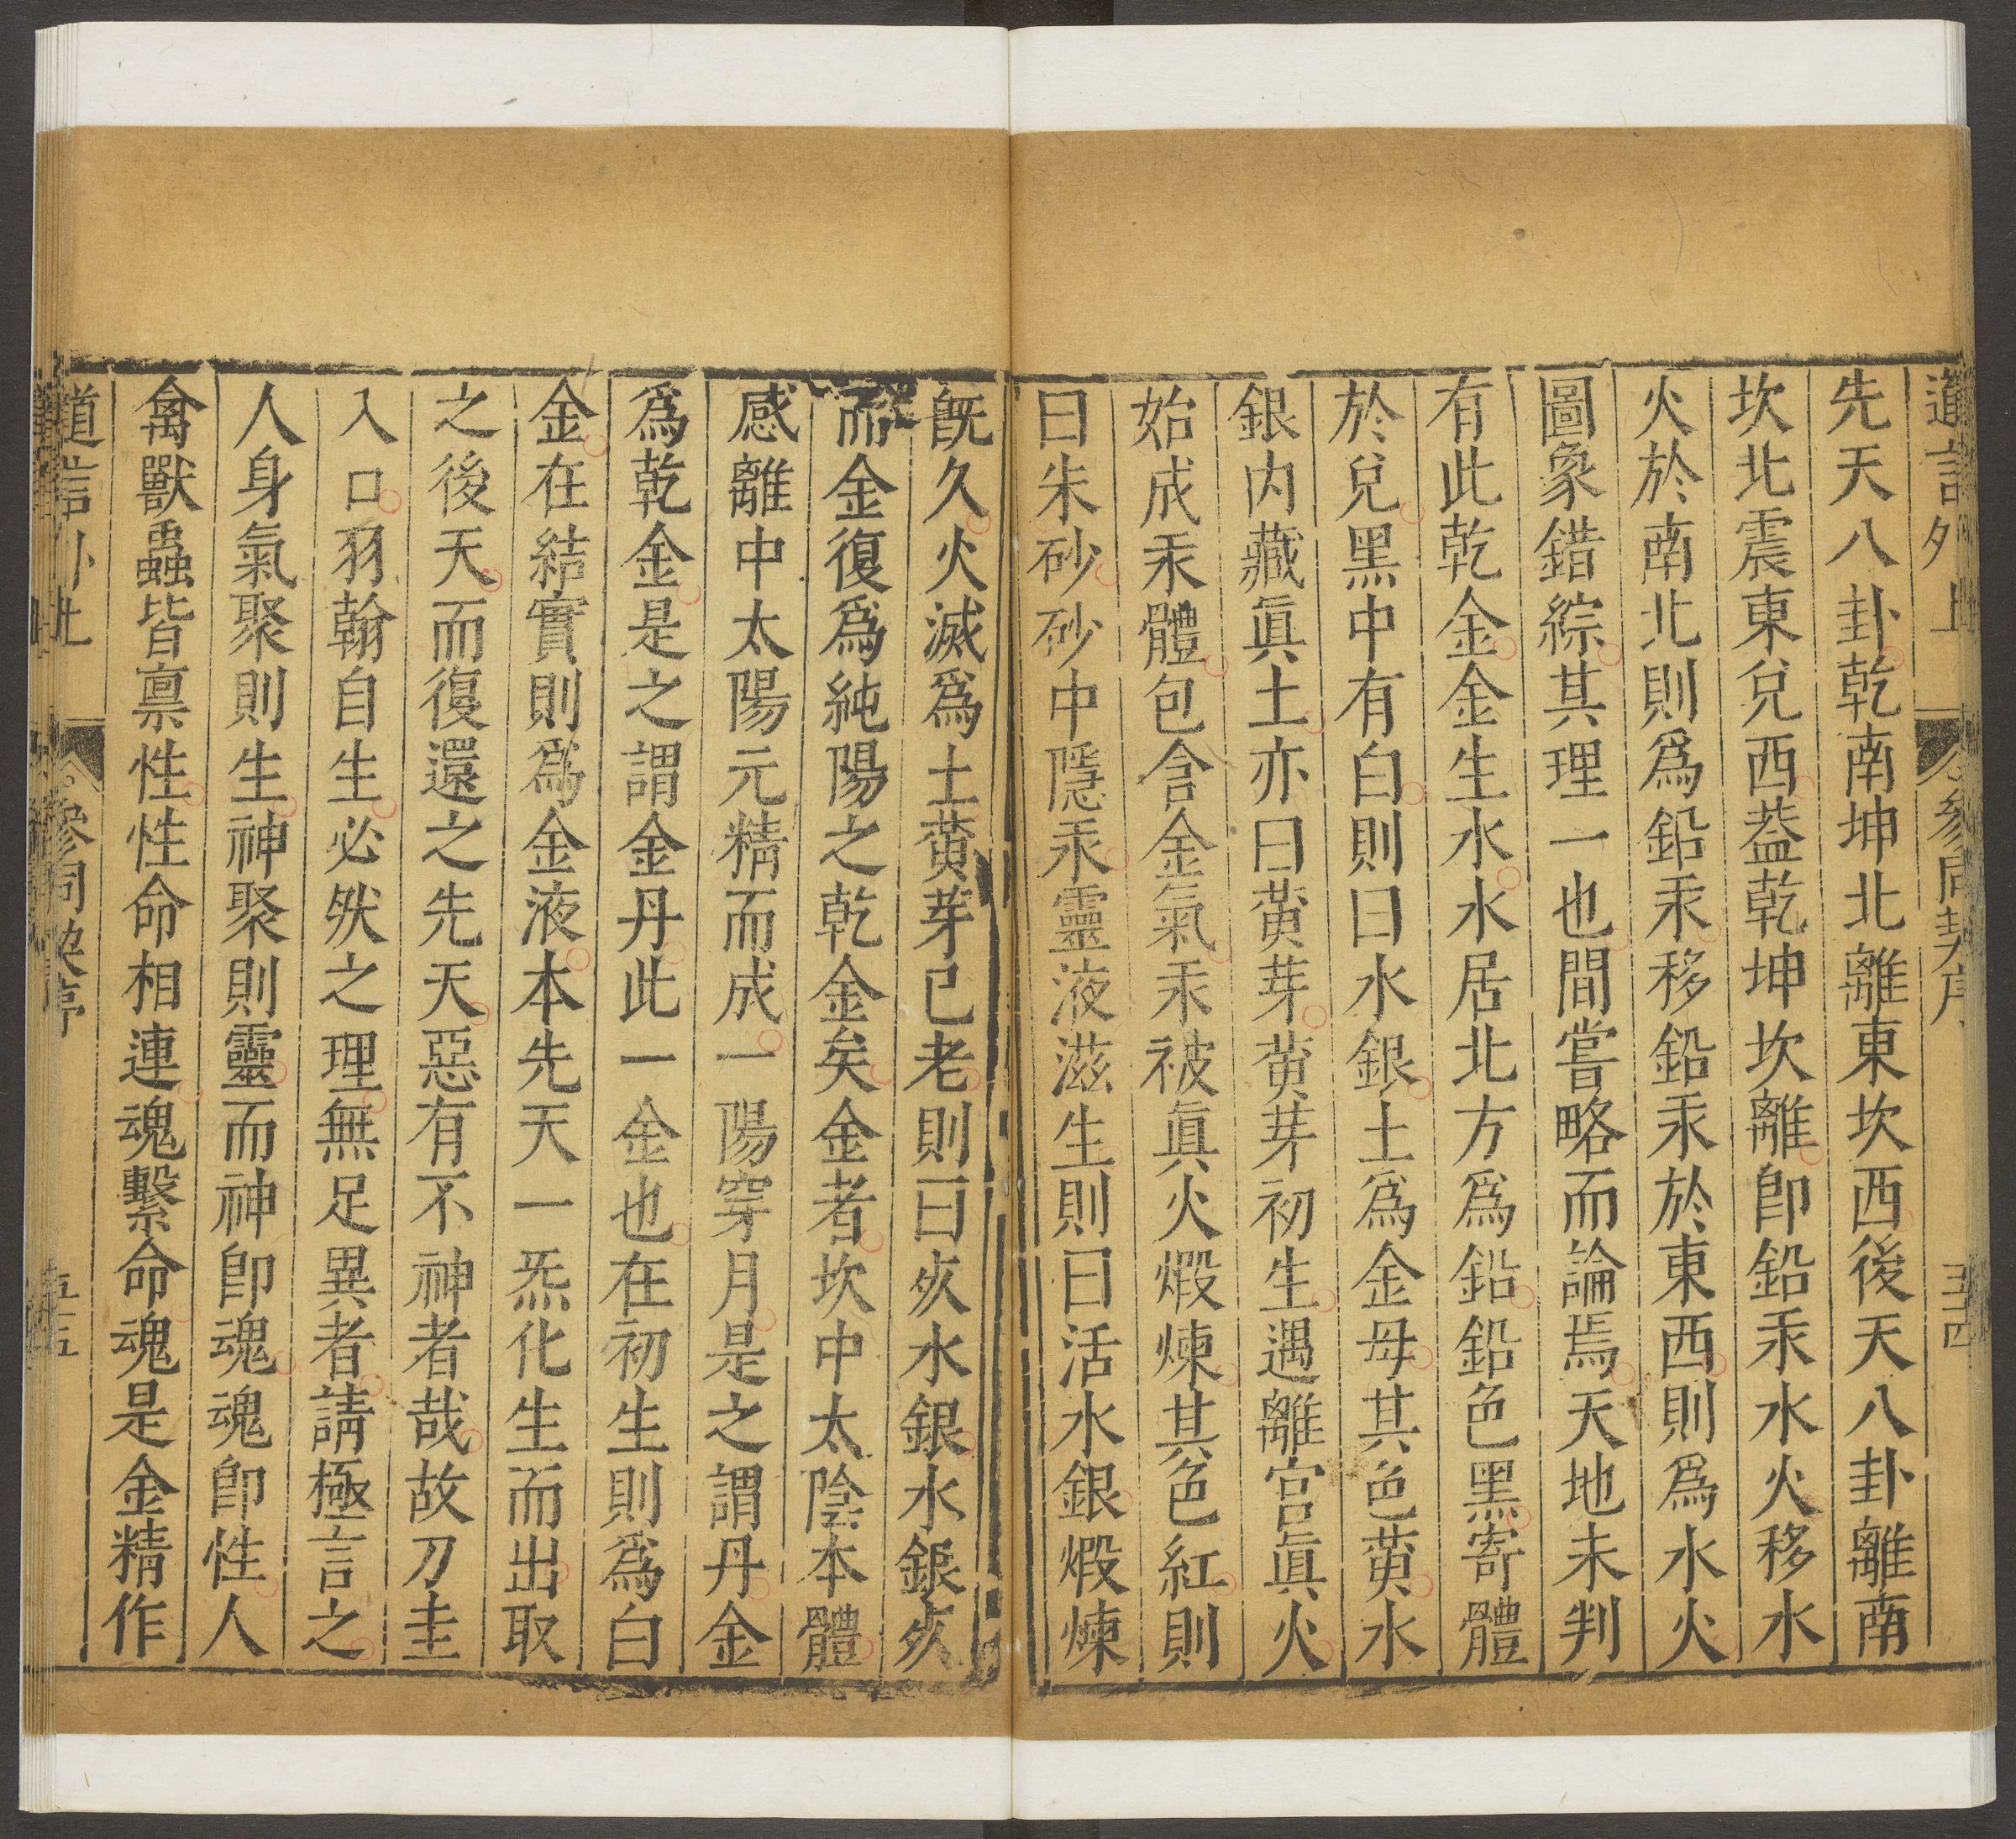 道言外 上 參同契序 五十四
先天八卦乾南坤北離東坎西後天八卦離南
坎北震東兌西葢乾坤坎離卽鉛汞水火移水
火於南北則爲鉛汞移鉛汞於東西則爲水火
圖象錯綜其理一也間嘗略而論焉天地未判
有此乾金金生水水居北方爲鉛鉛色黑寄體
於兌黑中有白白則曰水銀土爲金母其色黄水
銀内藏眞土土亦曰黄芽黄芽初生遇離宫眞火
始成汞體包含金氣汞被眞火煆煉其色紅則
曰朱砂砂中隱汞靈液滋生則曰活水銀煆煉
旣久火滅爲土黄芽已老則曰死水銀水銀死
而金復爲純陽之乾金矣金者坎中太陰本體
感離中太陽元精而成一陽穿月是之謂丹金
爲乾金是之謂金丹此一金也在初生則爲白
金在結實則爲金液本先天一炁化生而出取
之後天而復還之先天惡有不神者哉故刀圭
入口羽翰自生必然之理無足異者請極言之
人身氣聚則生神聚則靈而神卽魂魂卽性人
禽獸蟲皆禀性性命相連魂繫命魂是金精作
道言外 上 參同契序 五十五